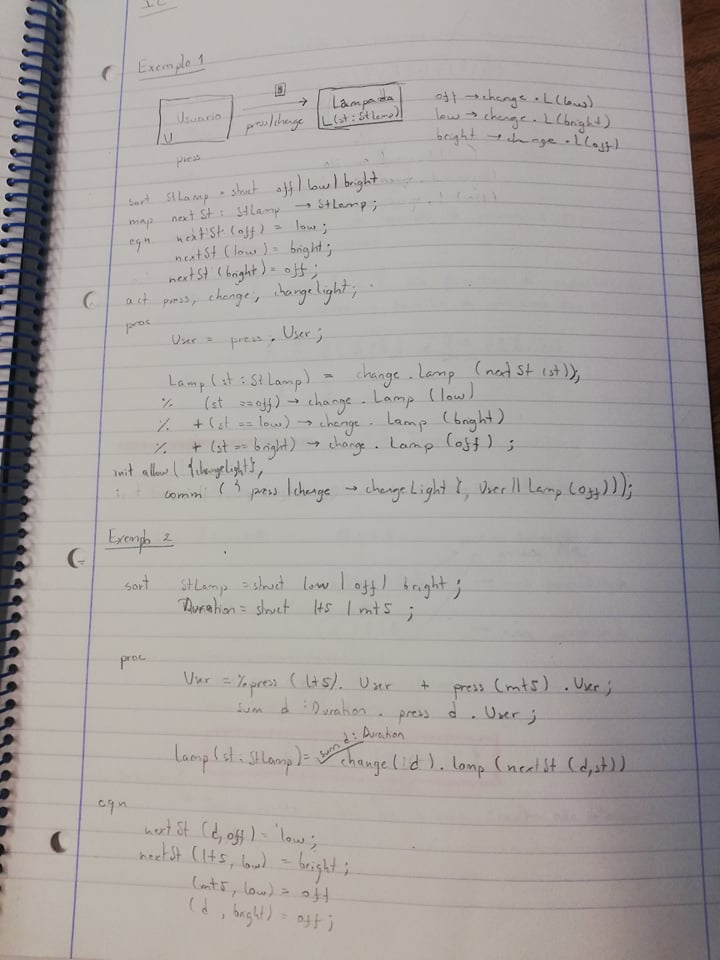 Exemplo 1
Usuario
U
press
press/change
Lampada
L(st: StLamp)
off → change . L(low)
low → change . L(bright)
bright → change . L(off)
sort StLamp = struct off | low | bright
map nextSt : StLamp → StLamp;
eqn nextSt (off) = low;
nextSt (low) = bright;
nextSt (bright) = off;
act press, change, changeLight;
proc
User = press . User;
Lamp (st : StLamp) = change . Lamp (nextSt (st));
% (st == off) → change . Lamp (low)
% + (st == low) → change . Lamp (bright)
% + (st == bright) → change . Lamp (off) ;
init allow ( {changeLight},
comm ( { press | change → changeLight }, User || Lamp (off)));
Exemplo 2
sort StLamp = struct low | off | bright ;
Duration = struct lt5 | mt5 ;
proc
User = % press (lt5) . User + press (mt5) . User ;
sum d : Duration . press d . User ;
Lamp (st : StLamp) = sum d : Duration change (d) . lamp (nextSt (d,st))
eqn
nextSt (d, off) = low ;
nextSt (lt5, low) = bright ;
(mt5, low) = off
(d , bright) = off ;